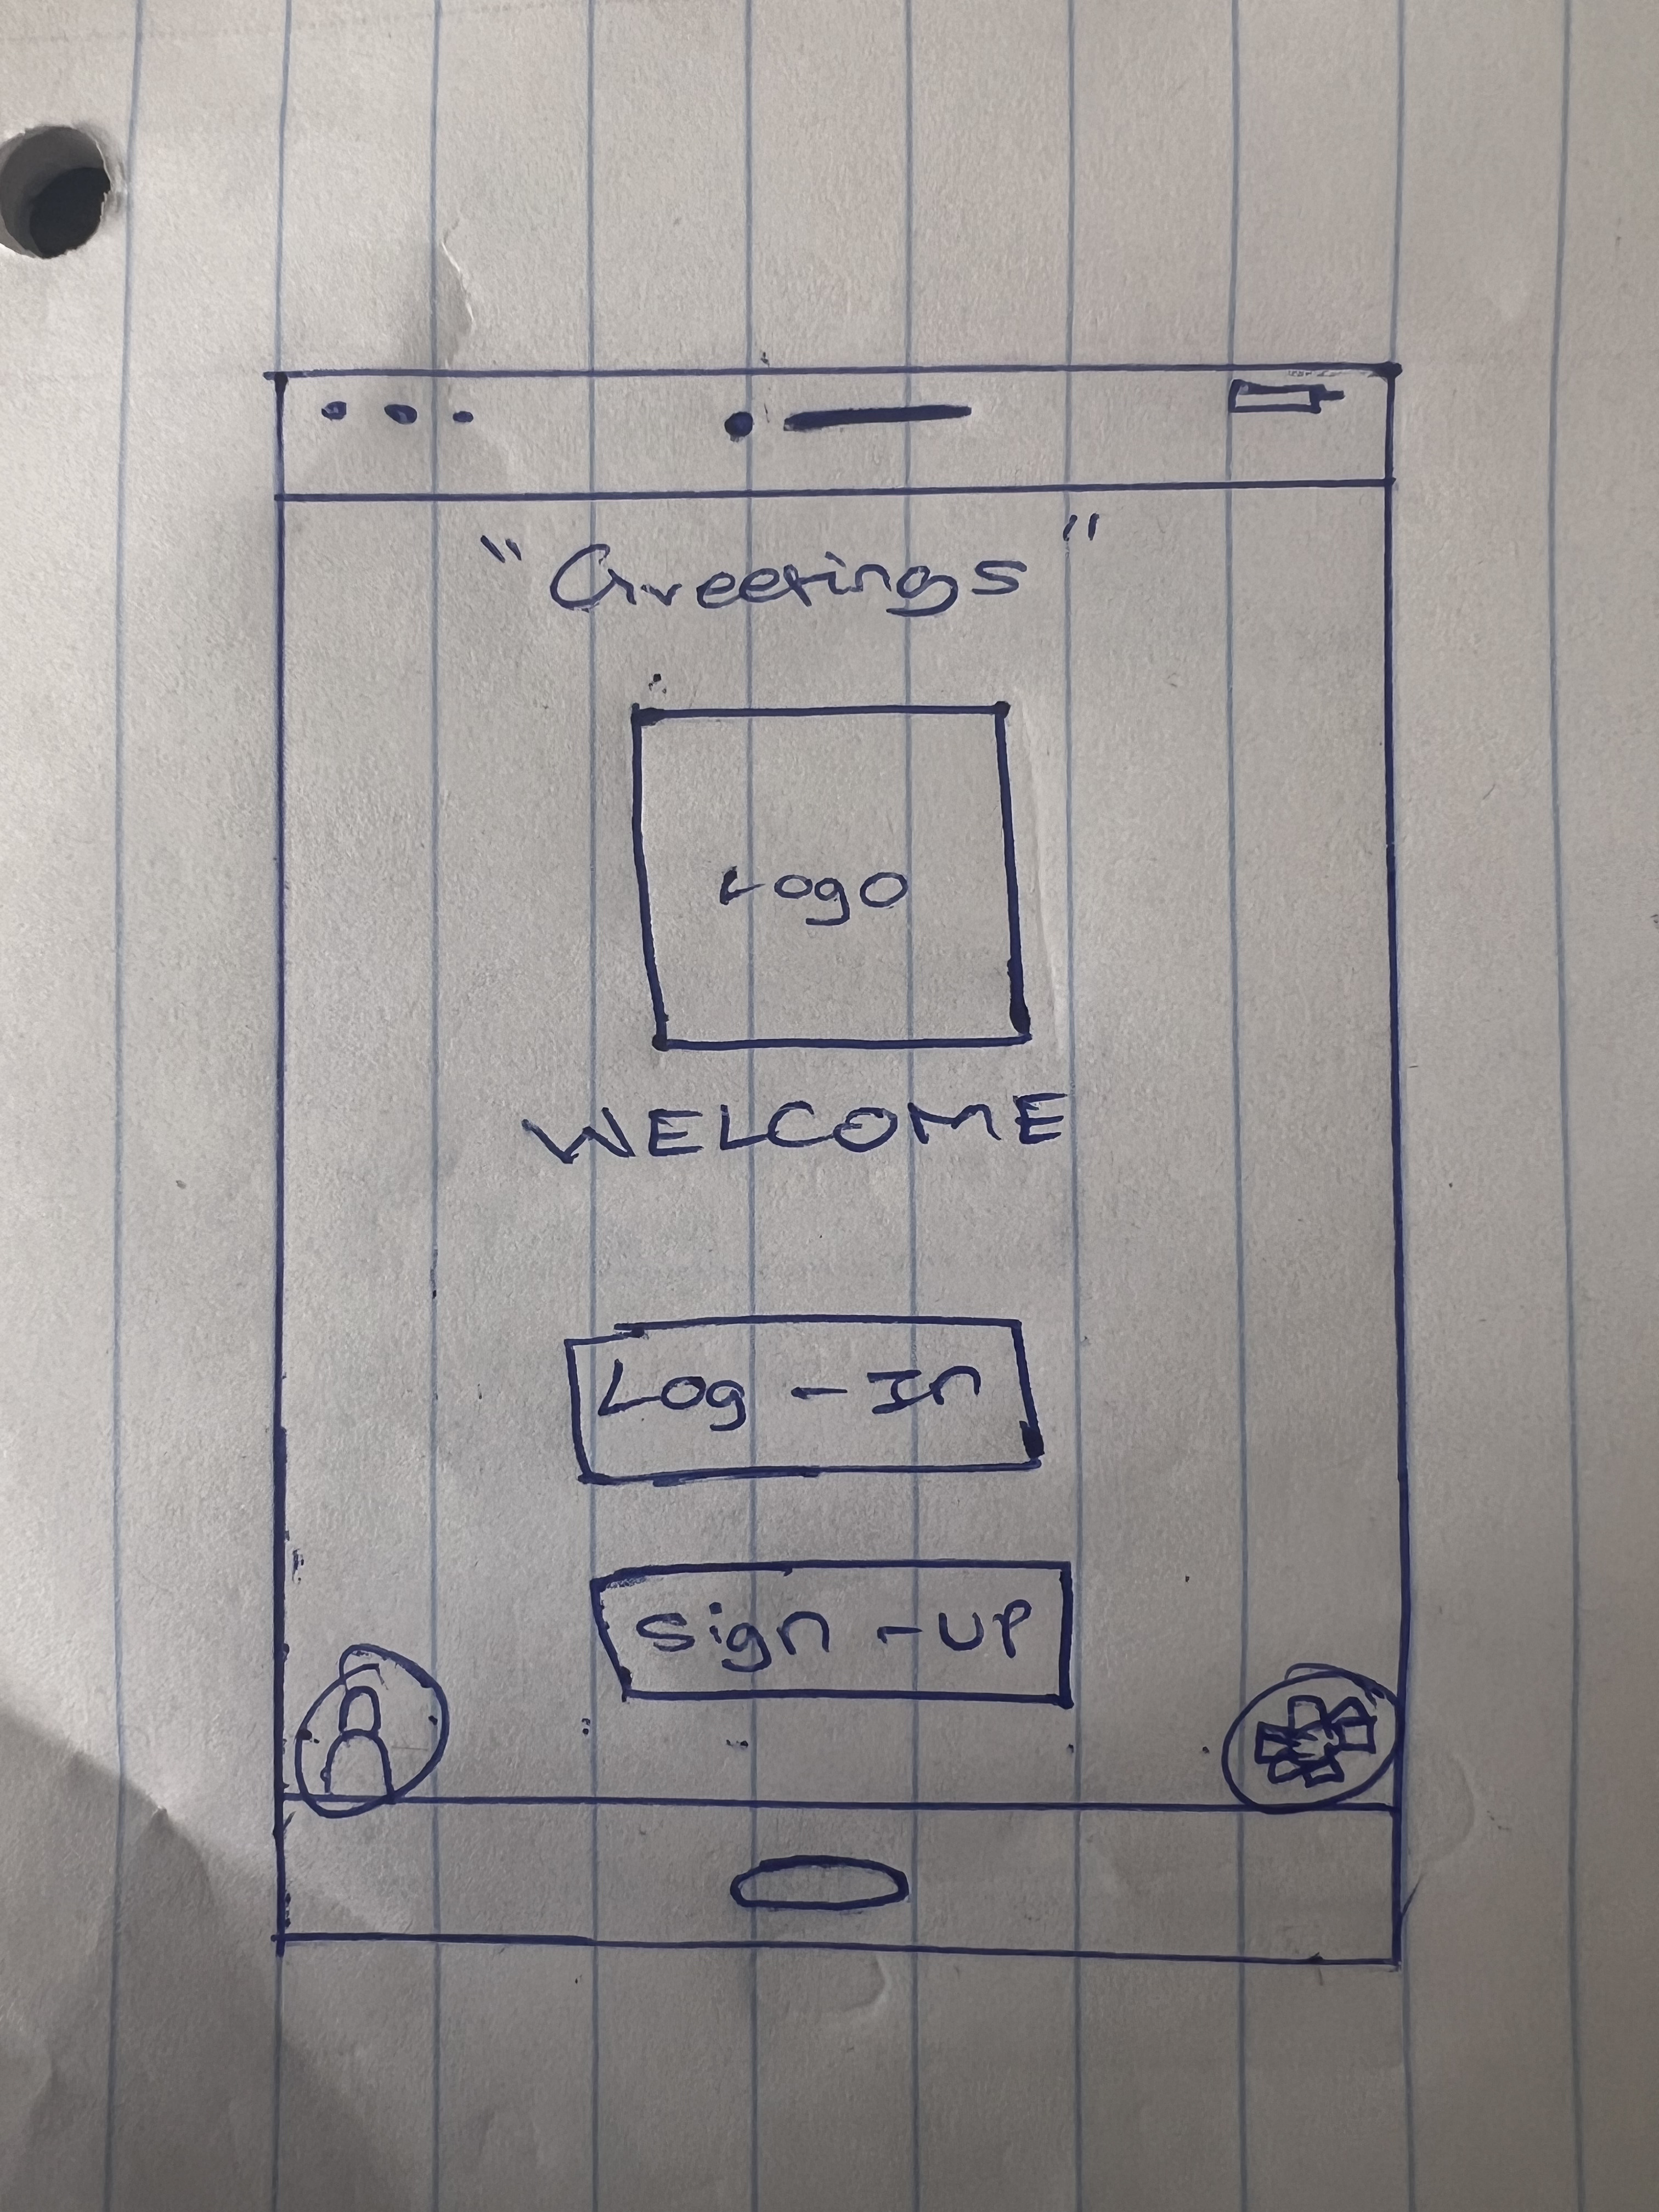 "Greetings"
Logo
WELCOME
Log - In
Sign - UP